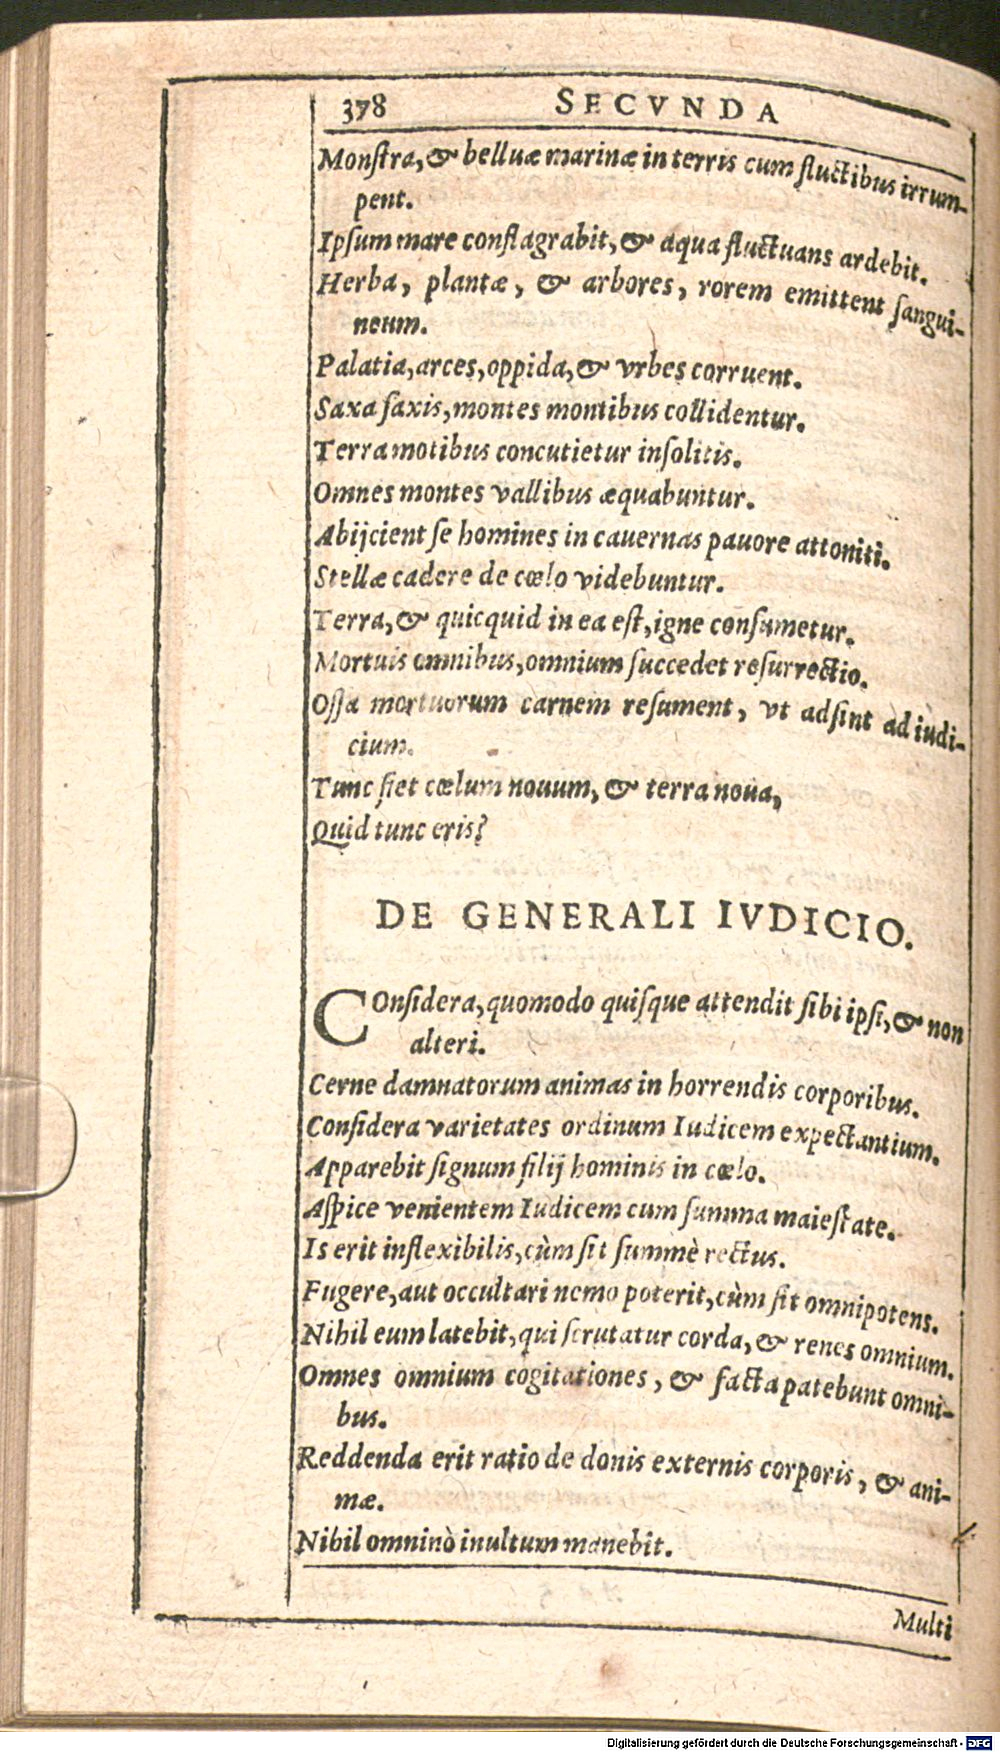 378 SECVNDA
Monſtra, & belluæ marinæ in terris cum fluctibus irrum-
pent.
Ipſum mare conflagrabit, & aqua fluctuans ardebit.
Herba, plantæ, & arbores, rorem emittent ſangui-
neum.
Palatia, arces, oppida, & vrbes corruent.
Saxa ſaxis, montes montibus collidentur.
Terra motibus concutietur inſolitis.
Omnes montes vallibus æquabuntur.
Abijcient ſe homines in cauernas pauore attoniti.
Stellæ cadere de cœlo videbuntur.
Terra, & quicquid in ea eſt, igne conſumetur.
Mortuis omnibus, omnium ſuccedet reſurrectio.
Oſſa mortuorum carnem reſument, vt adſint ad iudi-
cium.
Tunc fiet cœlum nouum, & terra noua,
Quid tunc eris?
DE GENERALI IVDICIO.
COnſidera, quomodo quiſque attendit ſibi ipſi, & non
alteri.
Cerne damnatorum animas in horrendis corporibus.
Conſidera varietates ordinum Iudicem expectantium.
Apparebit ſignum filij hominis in cœlo.
Aſpice venientem Iudicem cum ſumma maieſtate.
Is erit inflexibilis, cùm ſit ſummè rectus.
Fugere, aut occultari nemo poterit, cùm ſit omnipotens.
Nihil eum latebit, qui ſcrutatur corda, & renes omnium.
Omnes omnium cogitationes, & facta patebunt omni-
bus.
Reddenda erit ratio de donis externis corporis, & ani-
mæ.
Nihil omninò inultum manebit.
Multi
Digitalisierung gefördert durch die Deutsche Forschungsgemeinschaft - DFG